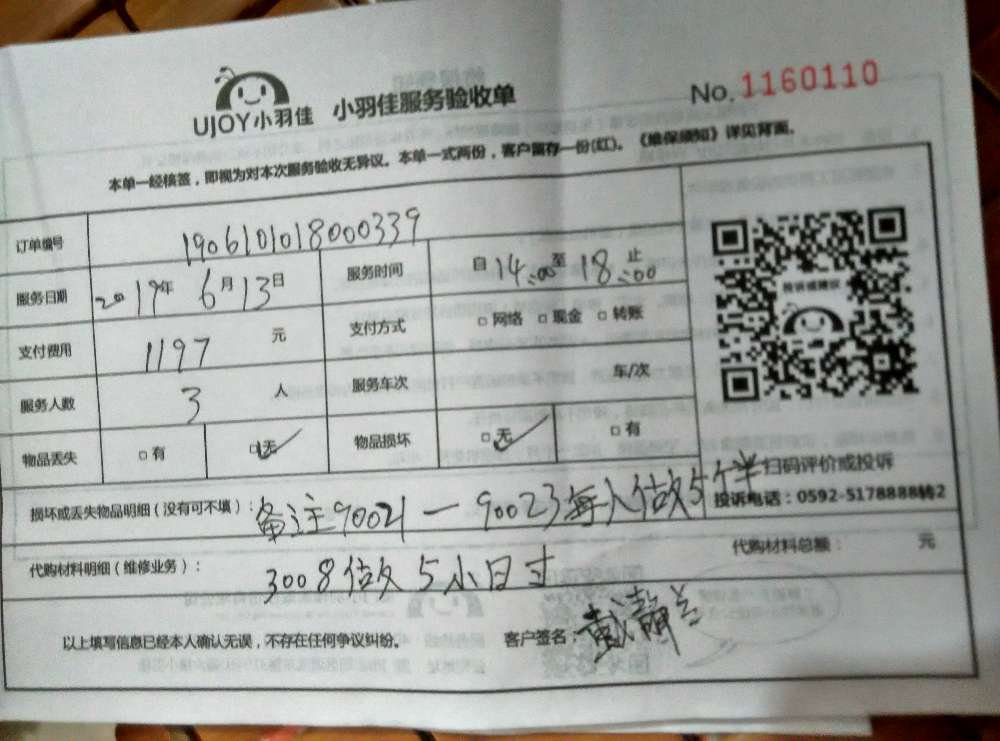 UJOY小羽佳 小羽佳服务验收单 No. 1160110
本单一经核签，即视为对本次服务验收无异议。本单一式两份，客户留存一份(红)。《维保须知》详见背面。
订单编号 1906101018000339
服务日期 2019年 6月13日 服务时间 自 14:00 至 18:00 止
支付费用 1197 元 支付方式 □ 网络 □ 现金 □ 转账
服务人数 3 人 服务车次 车/次
物品丢失 □ 有 □ 无 ✓ 物品损坏 □ 无 ✓ □ 有
投诉或建议
扫码评价或投诉
投诉电话：0592-5178888转2
损坏或丢失物品明细（没有可不填）：备注90021一90023每人做5个半
代购材料明细（维修业务）：3008做5小日寸 代购材料总额： 元
以上填写信息已经本人确认无误，不存在任何争议纠纷。 客户签名：戴